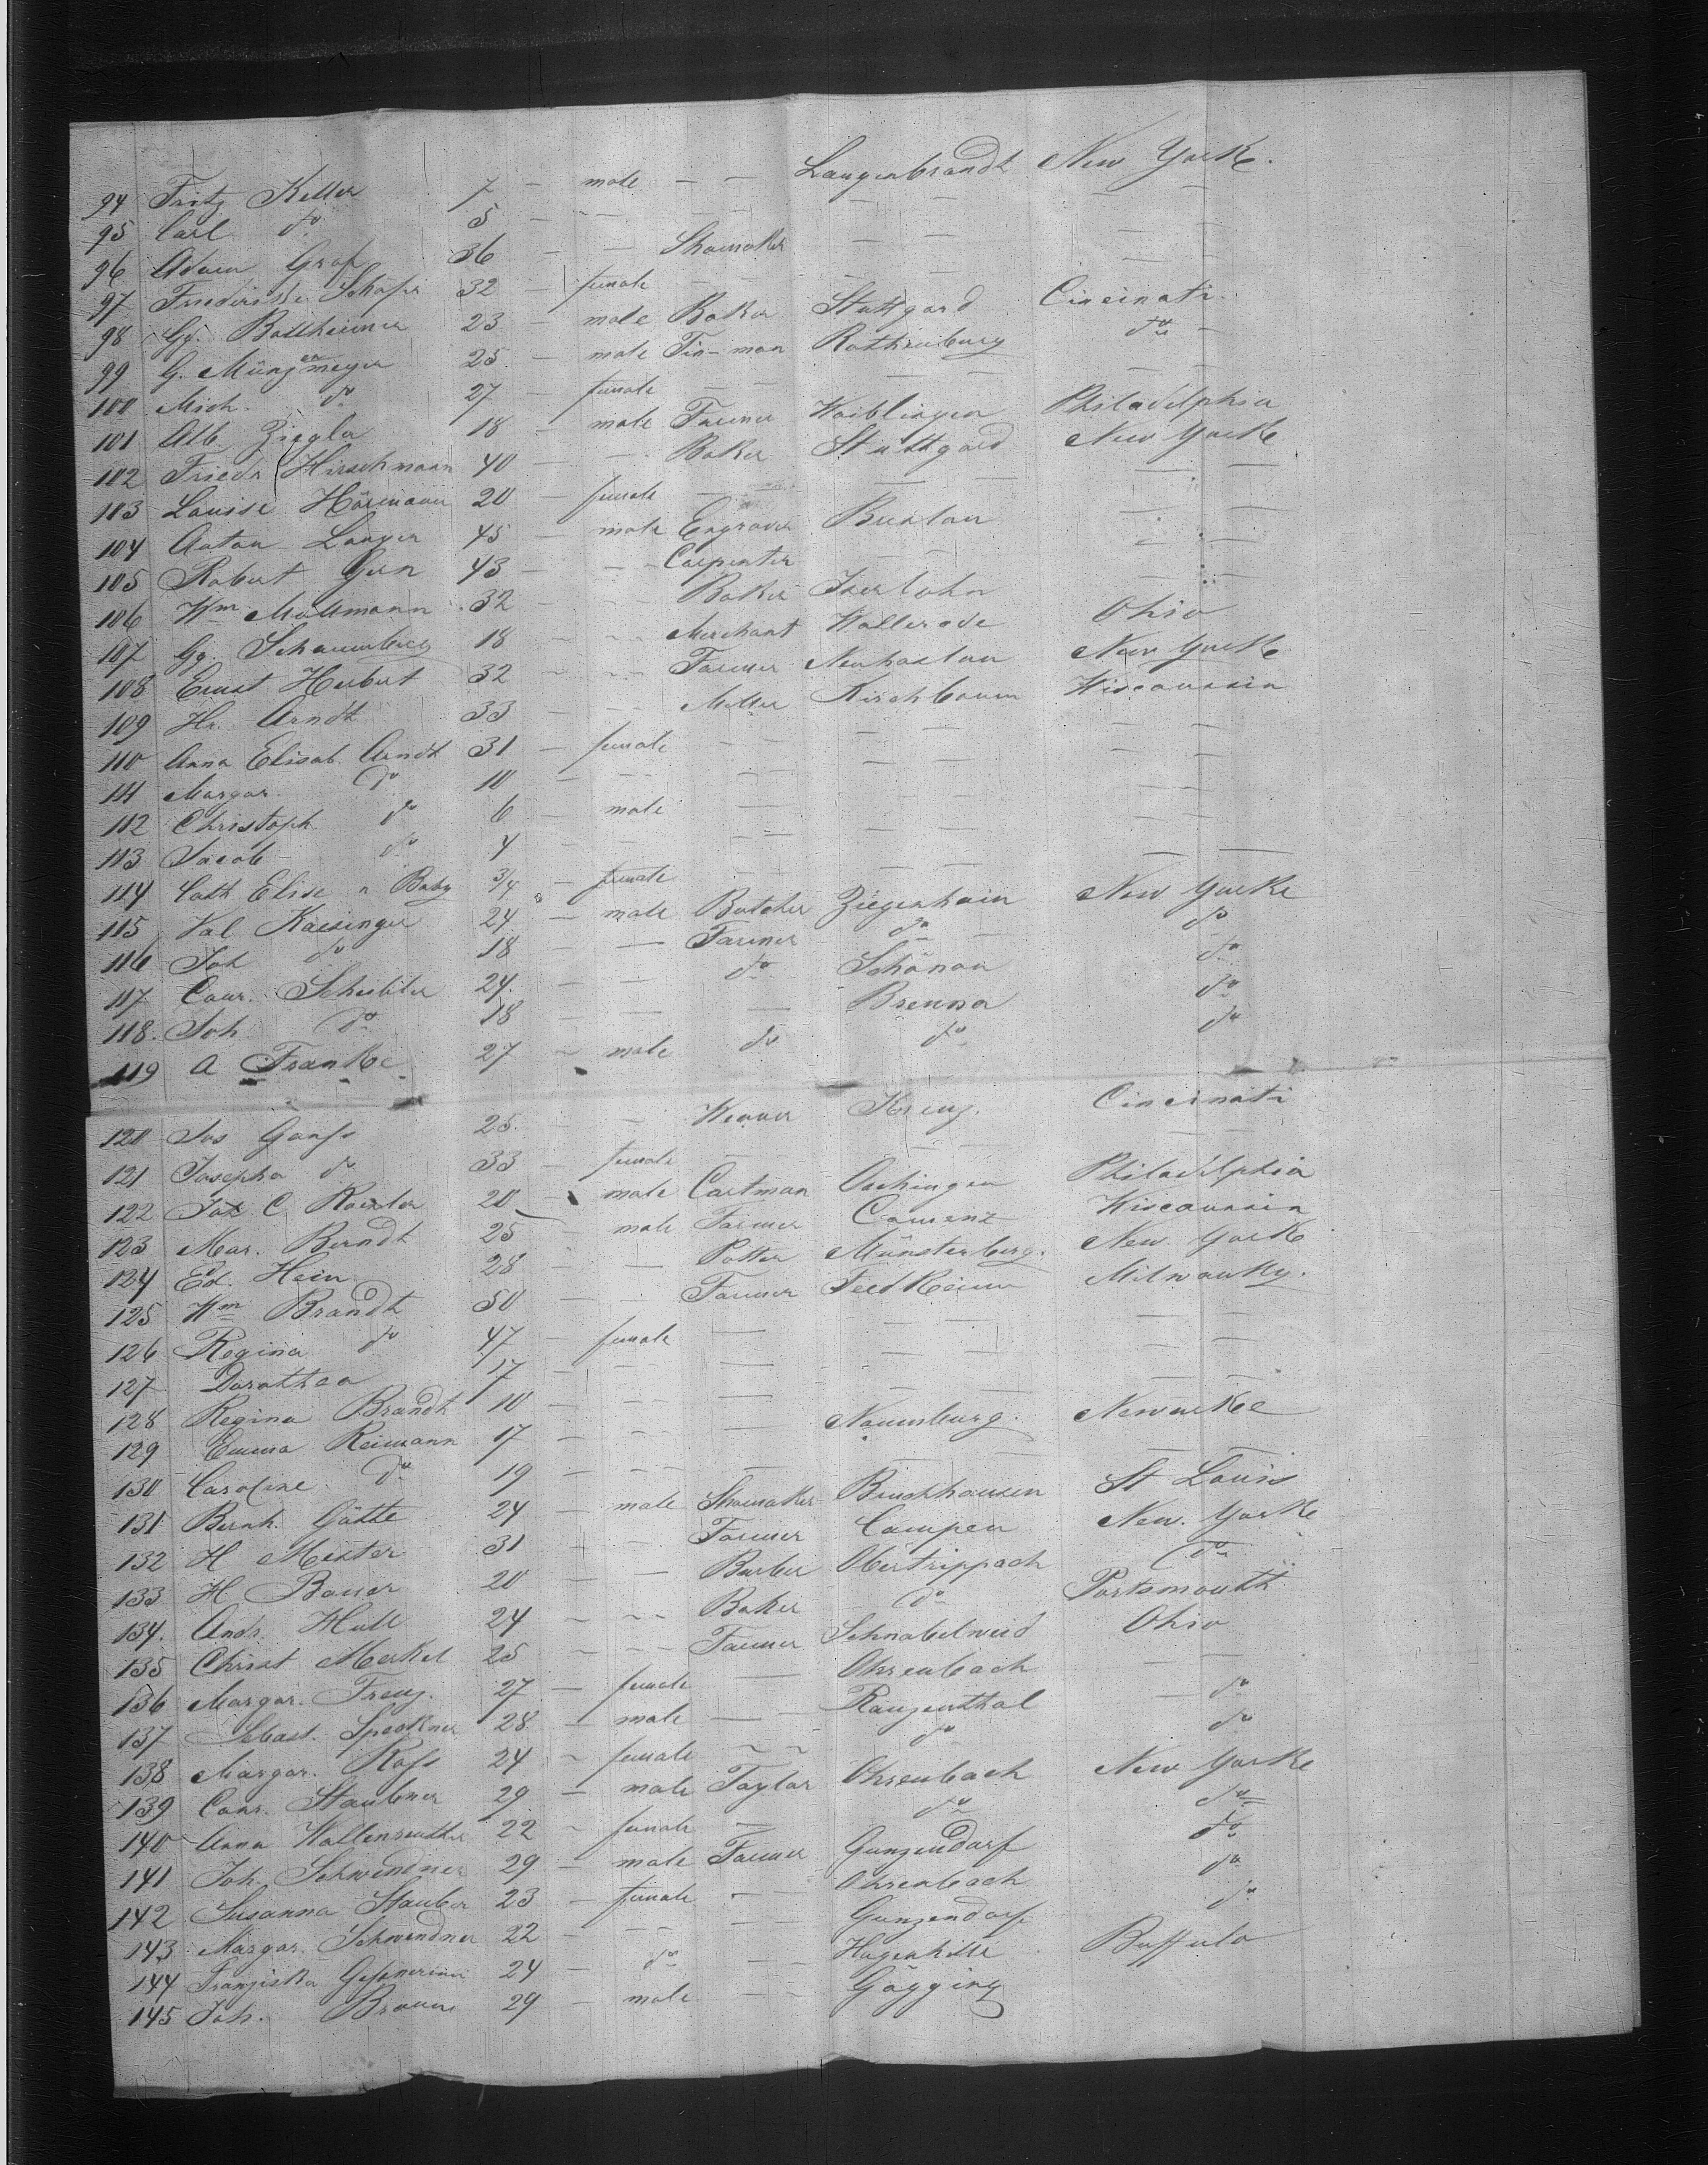 94 Fritz Keller 7 — male — — Langenbrandt New York.
95 Carl do 5 — — — — — — — —
96 Adam Graf 36 — — Shoemaker — — — —
97 Friederike Schäfer 32 — female — — — — — —
98 Gg. Ballheimer 23 — male Baker Stuttgard Cincinati.
99 G. Münzenmeyer 25. — male Tin-man Rothenburg do —
100 Mich. do 27 — female — — — — — —
101 Alb. Ziegler 18 — male Farmer Waiblingen Philadelphia
102 Friedr Hirschmann 40 — — Baker Stuttgard New Yorke
103 Louise Hörmann 20 — female — — — — — —
104 Anton Langer 45 — male Engraver Breslau — —
105 Robert Gern 43 — — Carpenter — — — —
106 Wm Mollmann 32 — — Baker Iserlohn — —
107 Gg. Schaumberg 18 — — Merchant Wallerode Ohio
108 Ernst Herbert 32 — — Farmer Neuhaslau New Yorke
109 Hr. Arndt 33 — — Miller Kirchbaum Wisconssin
110 Anna Elisab. Arndt 31 — female — — — — — —
111 Margar. do 10 — — — — — — —
112 Christoph do 6 — male — — — — —
113 Jacob do 4 — — — — — — —
114 Cath Elise " Baby 3/4 — female — — — — — —
115 Val Kaesinger 24 — male Butcher Ziegenhain New Yorke
116 Joh do 18 — — Farmer do — do
117 Conr. Scheibler 24. — — do Schönau do
118. Joh do 18 — — — Brenna do
119 A Franke 27 — male do do do
120 Jos Ganss 25. — Weaver Kreuz. Cincinati
121 Josepha do 33 — female — — — — —
122 Jos C Roesler 20 — male Cartman Oechingen Philadelphia
123 Mar. Berndt 25 — male Farmer Camenz Wisconssin
124 Ed. Hein 28 " — Potter Münsterberg. New York
125 Wm Brandt 50 — — Farmer Milwauky.
126 Regina do 47 — female — — — — —
127 Dorothea 17 — — — — — — —
128 Regina Brandt 10 — — — — — — —
129 Emma Reimann 17 — — — Naumburg. Newarke
130 Caroline do 19 — — — — — — —
131 Bernh. Götte 24 — male Shoemaker Bruchhausen St Louis
132 H Meister 31 — — Farmer Campen New. Yorke
133 H. Bauer 20 — — Barber Obertrippach do
134. Andr. Hull 24 — — Baker do Portsmouth
135 Christ Merkel 25 — — Farmer Schnabelweid Ohio
136 Margar. Freuz. 27 — female — Ohrenbach — —
137 Sebast. Speckner 28 — male — — Ranzenthal — do
138 Margar. Rofs 24 — female — — do do
139 Conr. Staubner 29 — male Taylor Ohrenbach New Yorke
140 Anna Wallenreuther 22 — female — do do
141 Joh. Schwendner 29 — male Farmer Gunzendorf do
142 Susanna Stauber 23 — female — — Ohrenbach do
143 Margar. Schwendner 22 — — — — Gunzendorf do
144 Franziska 24 — do — — Hagenhill Buffalo
145 Joh. Braun 29 — male — — Gögging